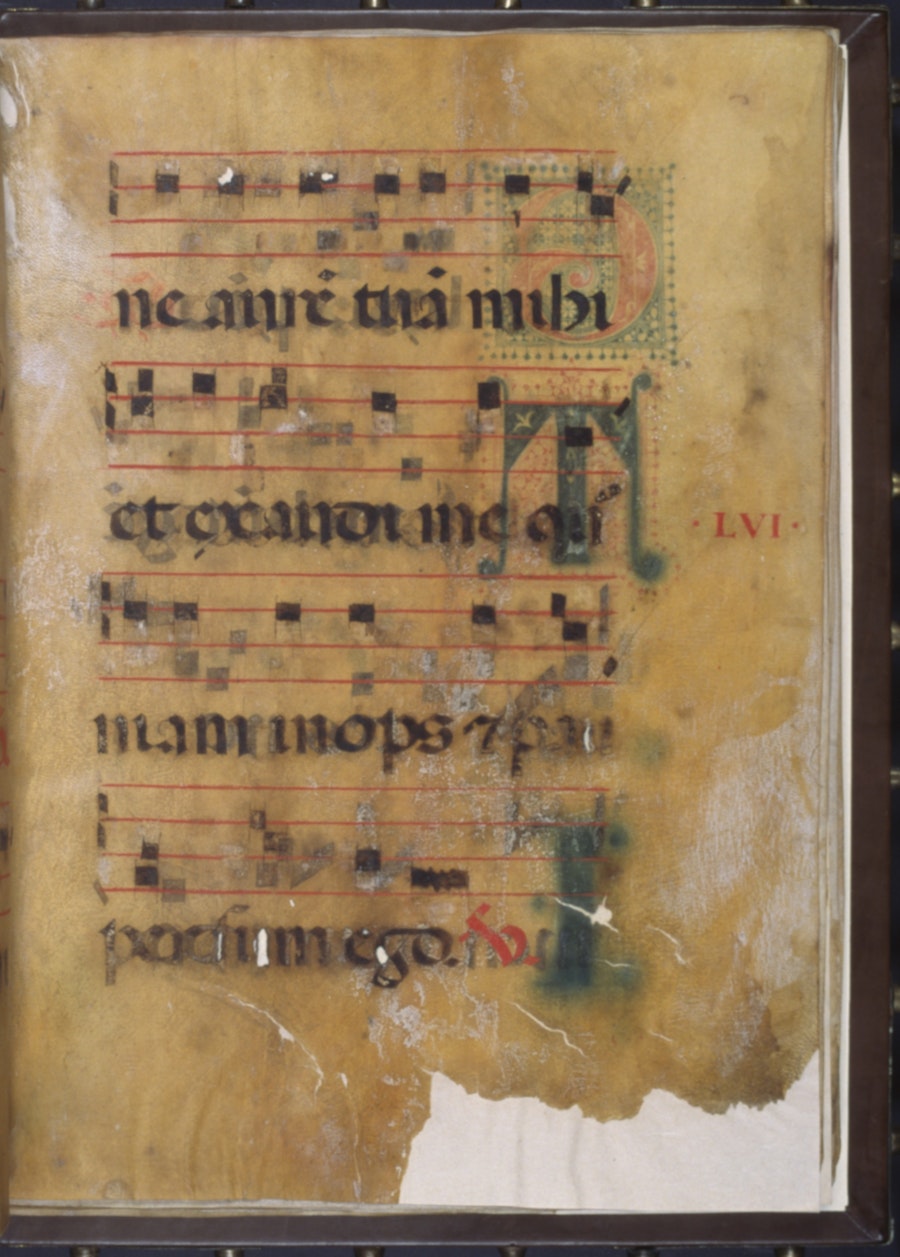 ne aurē tuā mihi
et exaudi me qu
· LVI ·
niam inops ⁊ pau
per sum ego. ℣.